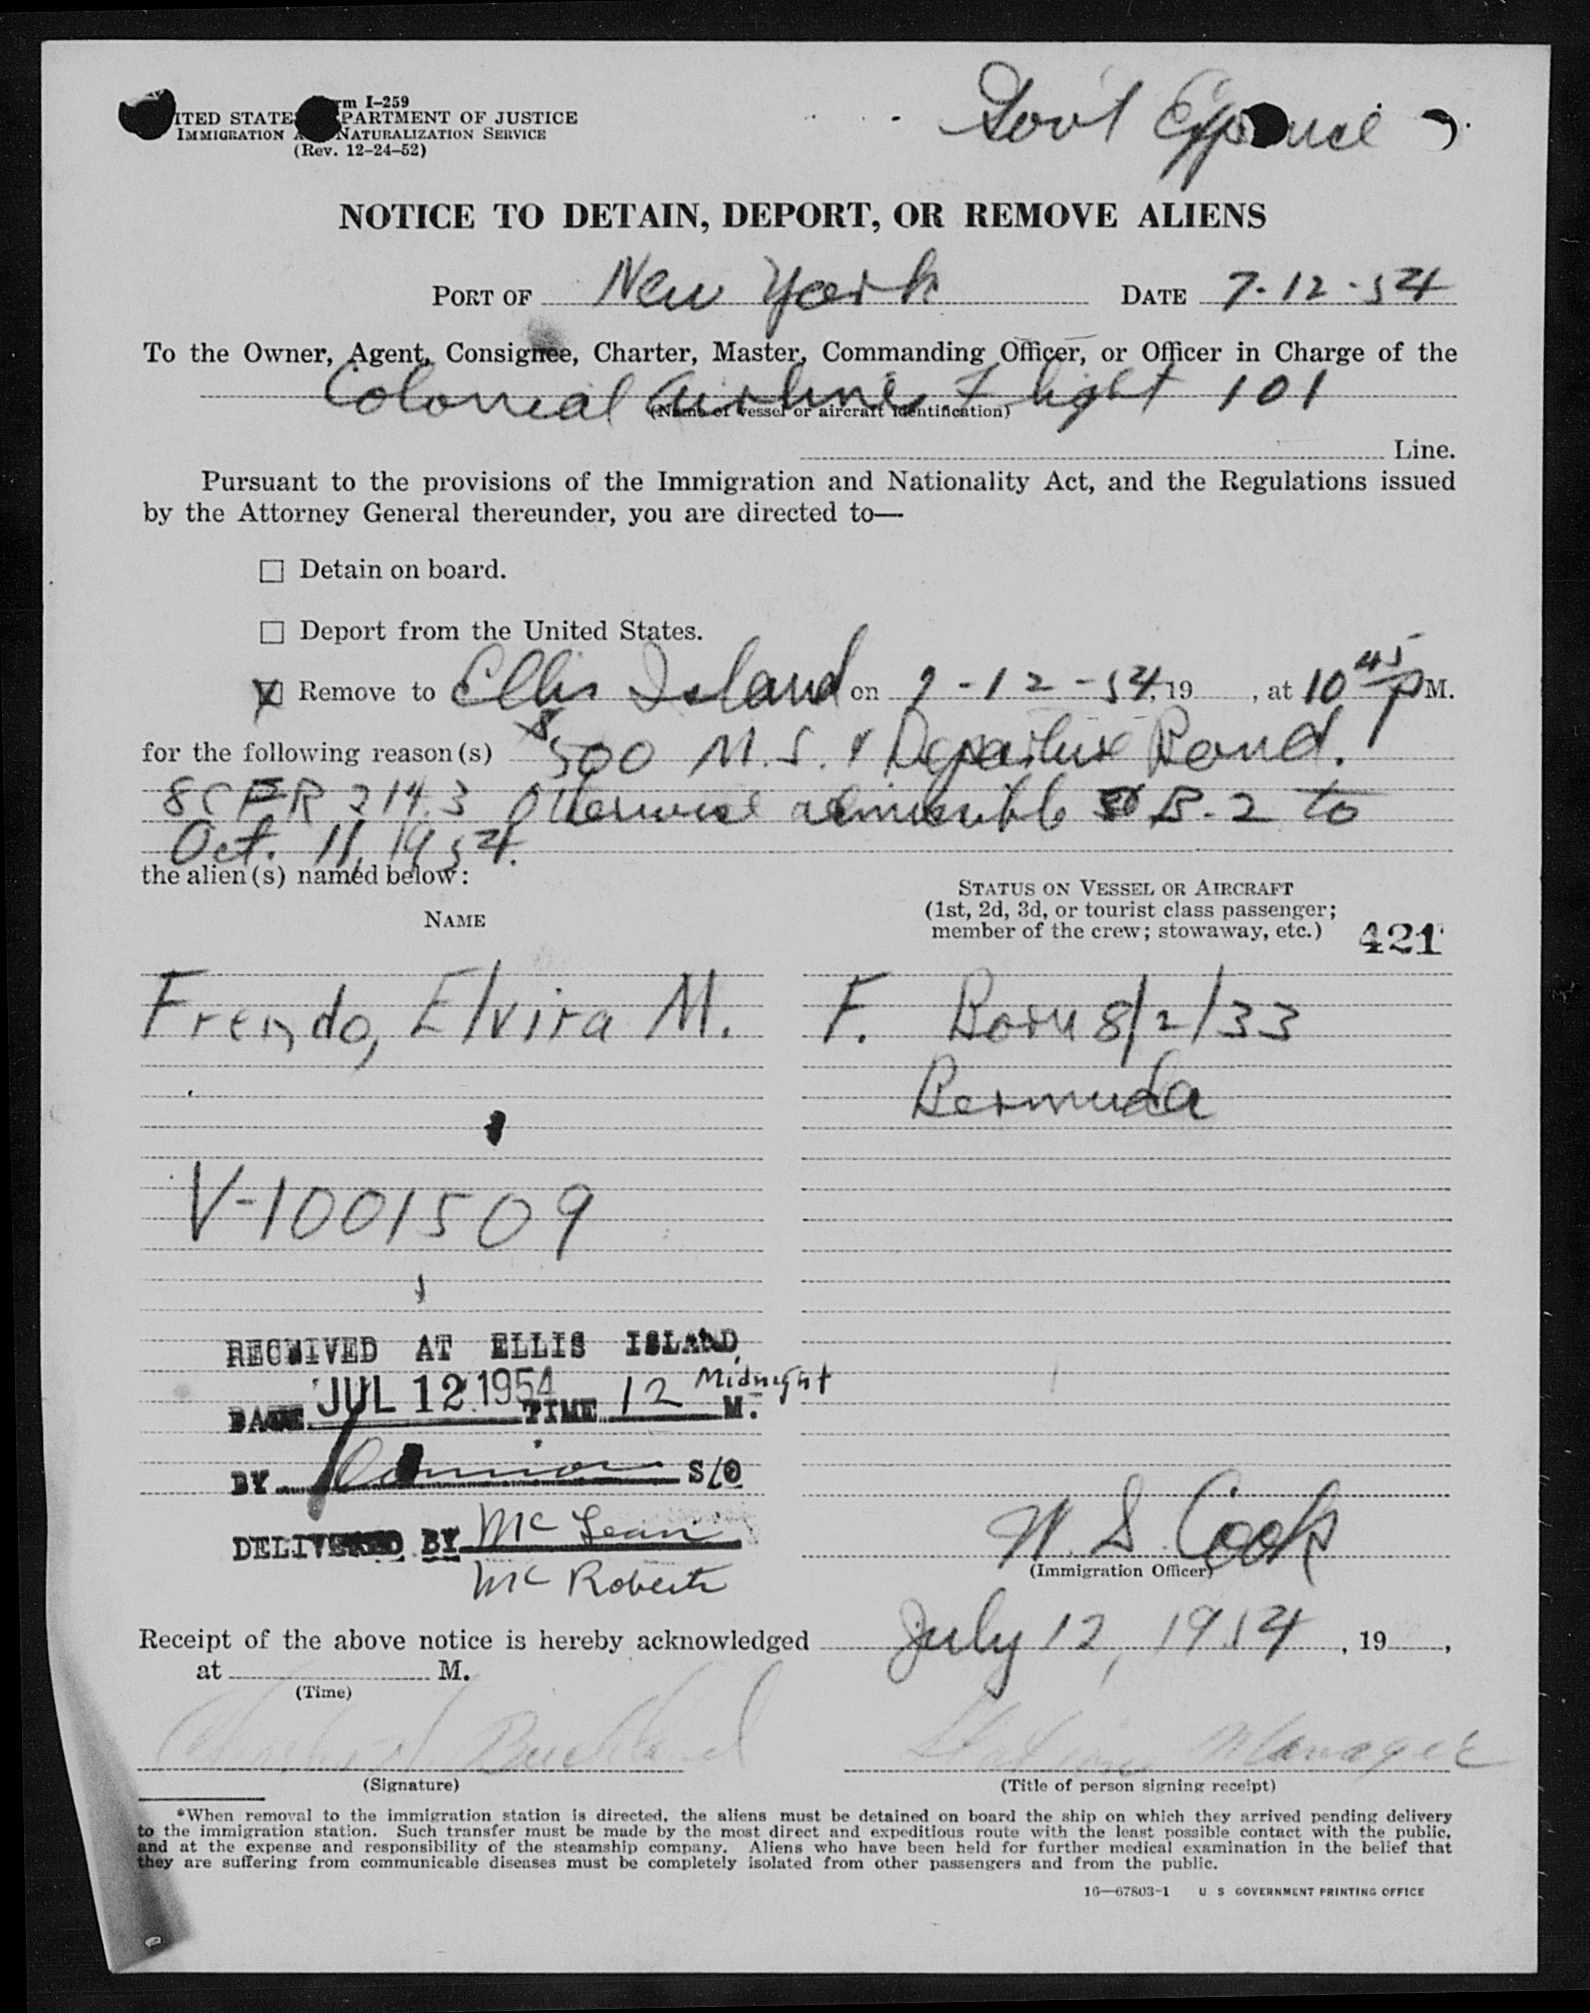 Form I-259
UNITED STATES DEPARTMENT OF JUSTICE
IMMIGRATION AND NATURALIZATION SERVICE
(Rev. 12-24-52)
Gov't Expense
NOTICE TO DETAIN, DEPORT, OR REMOVE ALIENS
PORT OF New York DATE 7-12-54
To the Owner, Agent, Consignee, Charter, Master, Commanding Officer, or Officer in Charge of the
Colonial Airline Flight 101
(Name of vessel or aircraft identification)
Line.
Pursuant to the provisions of the Immigration and Nationality Act, and the Regulations issued
by the Attorney General thereunder, you are directed to—
☐ Detain on board.
☐ Deport from the United States.
☒ Remove to Ellis Island on 7-12-54, 19 , at 10 45 P M.
for the following reason(s) $500 M.S. & Departure Bond.
8 CFR 214.3 Otherwise admissible B-2 to
Oct. 11, 1954.
the alien(s) named below:
NAME
STATUS ON VESSEL OR AIRCRAFT
(1st, 2d, 3d, or tourist class passenger;
member of the crew; stowaway, etc.)
421
Frendo, Elvira M. F. Born 8/2/33
Bermuda
V-1001509
RECEIVED AT ELLIS ISLAND
DATE JUL 12 1954 TIME 12 Midnight M.
BY S/O
DELIVERED BY McLean
McRoberts
W. S. Cook
(Immigration Officer)
Receipt of the above notice is hereby acknowledged July 12, 1954, 19 ,
at M.
(Time)
Station Manager
(Signature) (Title of person signing receipt)
*When removal to the immigration station is directed, the aliens must be detained on board the ship on which they arrived pending delivery
to the immigration station. Such transfer must be made by the most direct and expeditious route with the least possible contact with the public,
and at the expense and responsibility of the steamship company. Aliens who have been held for further medical examination in the belief that
they are suffering from communicable diseases must be completely isolated from other passengers and from the public.
16—67803-1 U S GOVERNMENT PRINTING OFFICE